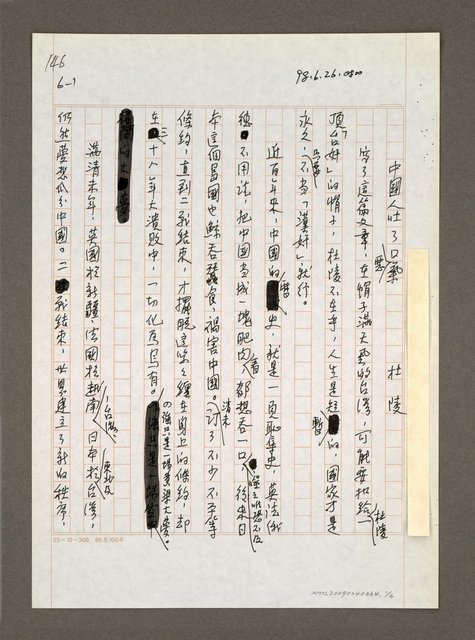 146
6-1
98.6.26.0800
中國人吐了口惡氣　杜陵
寫了這篇文章，在帽子滿天飛的台灣，可能要扣給杜陵一
頂「台奸」的帽子，杜陵不在乎，人生是短暫的，國家才是
永久，只要不當「漢奸」就行。
近百年來，中國的歷史，就是一頁恥辱史，英法俄
德不用說，把中國當成一塊肥肉，看都想吞一口，後來日
本這個島國也鯨吞蠶食，禍害中國。清末訂了不少不平等
條約，直到二戰結束，才擺脫這纏在國上的條約，却
在三十八年大潰敗中，一切化為烏有。只是一場黃粱大夢。
滿清末年，英國於新疆，法國於越南，日本於台灣、東北及
仍然夢想瓜分中國。二戰結束，世界建立了新的秩序，
25×10=250
NMTL20090240964, 1/6